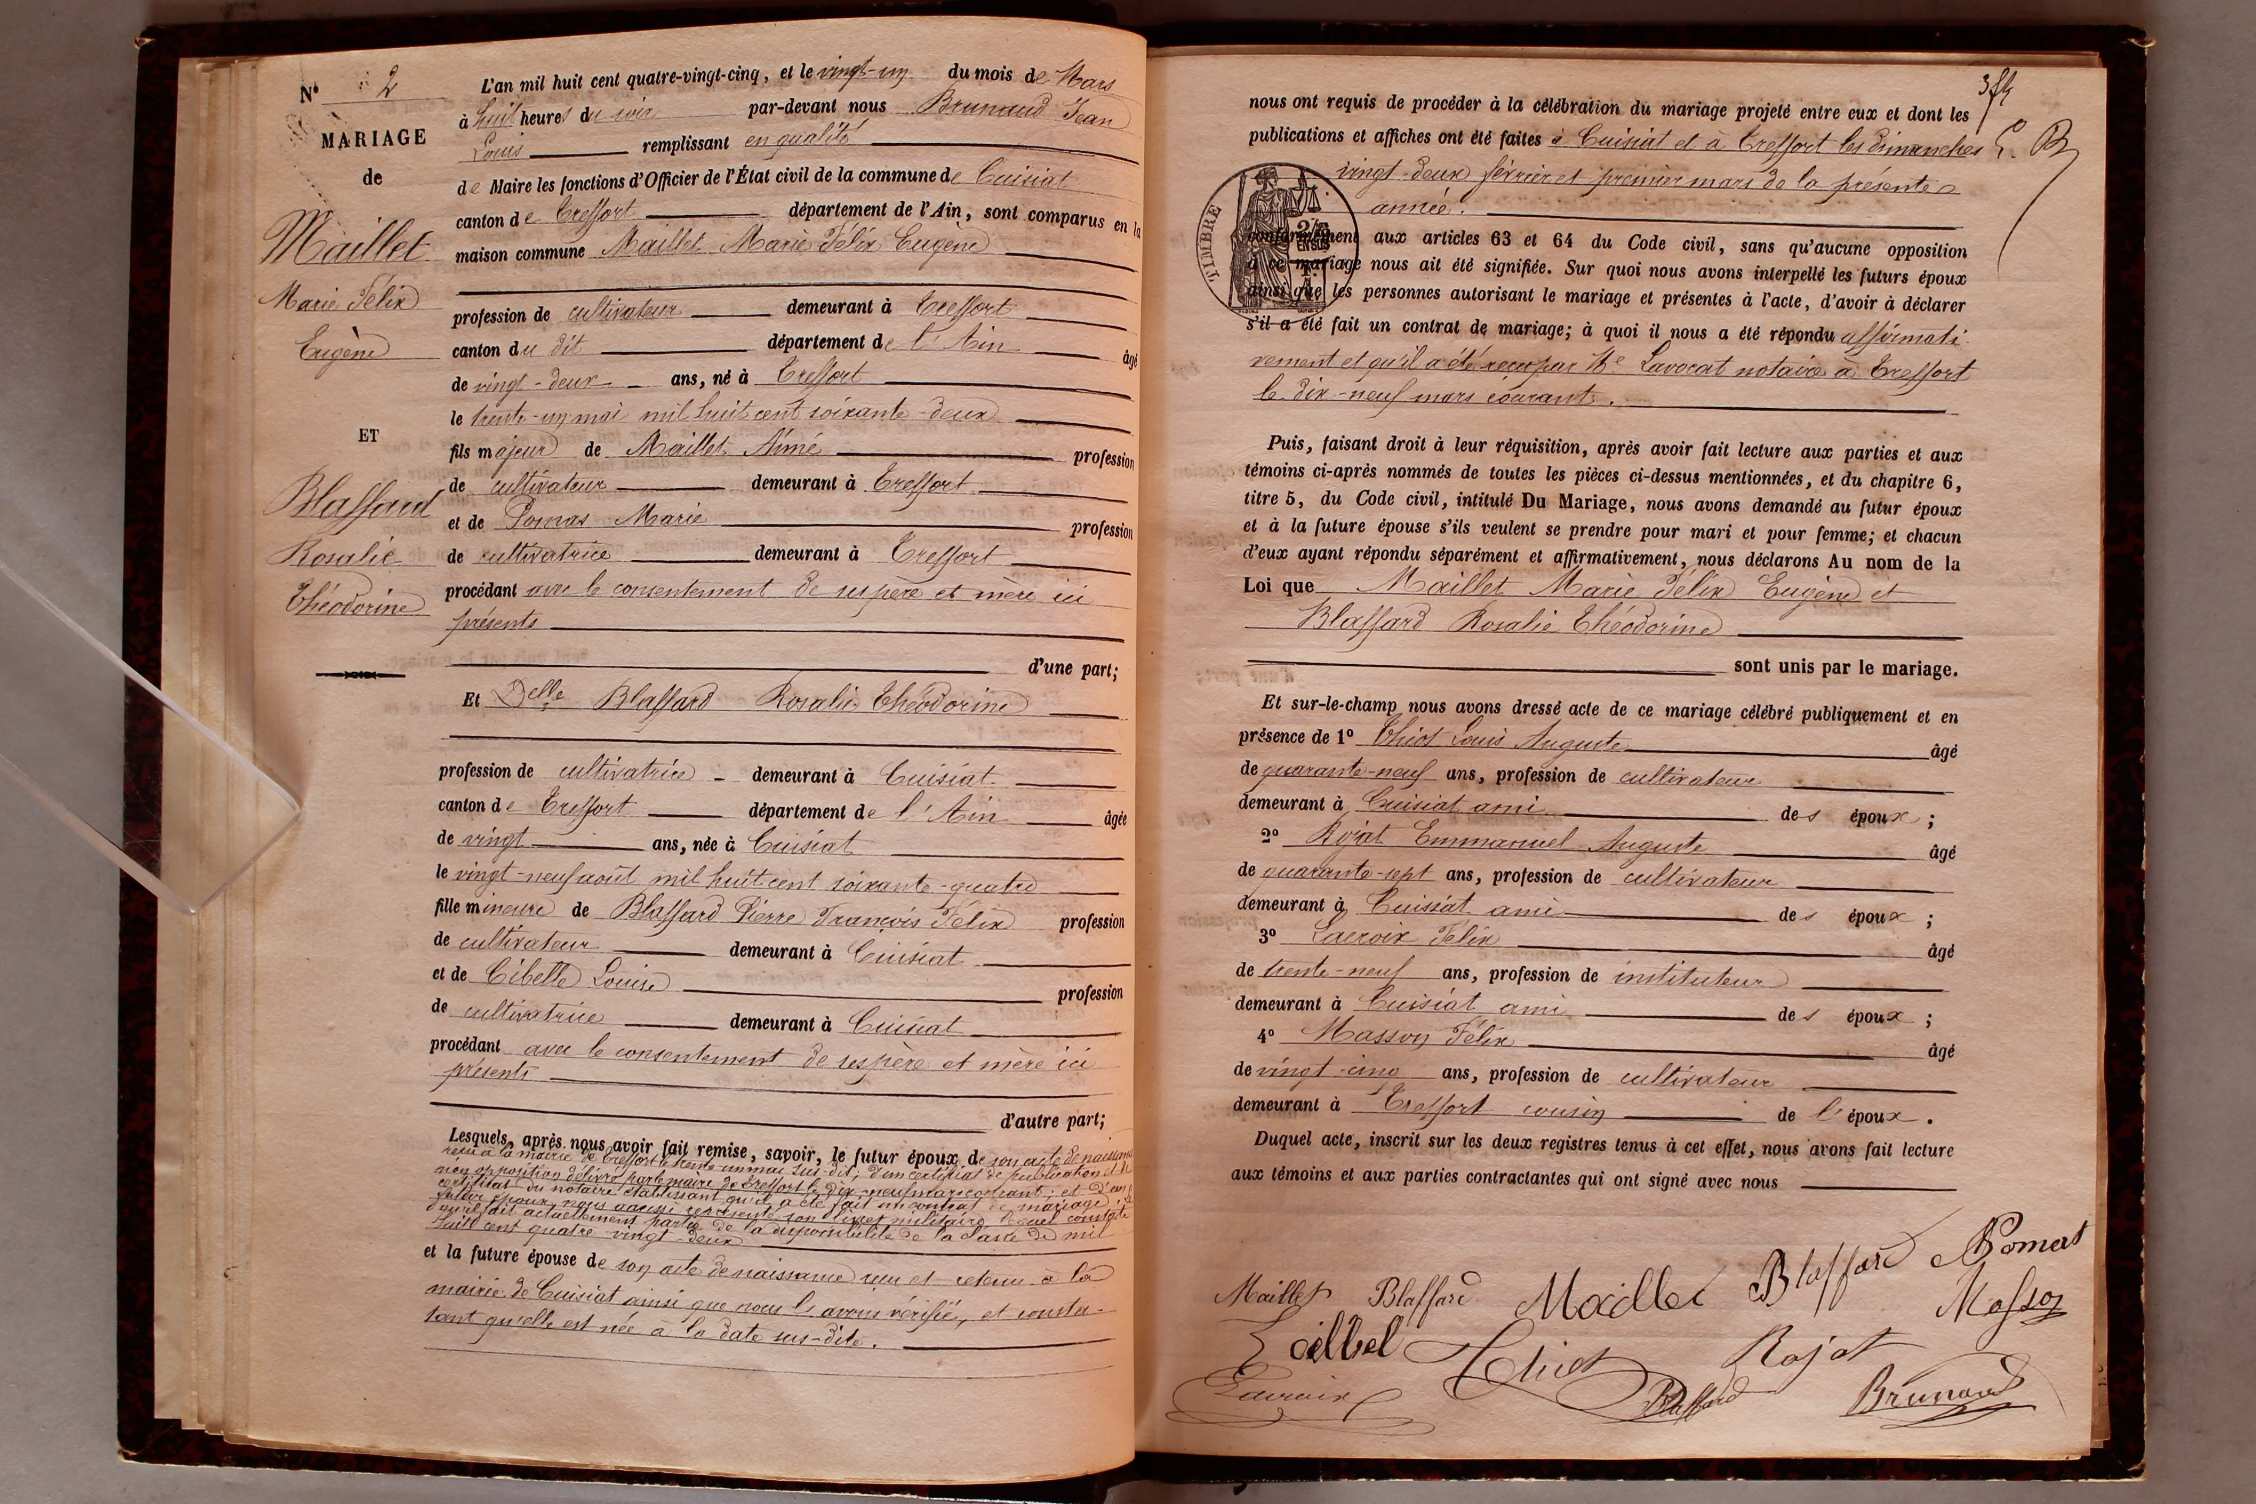 N° 2
MARIAGE
de
Maillet
Marie Félix
Eugène
ET
Blaffard
Rosalie
Théodorine
L'an mil huit cent quatre-vingt-cinq, et le vingt-un du mois de Mars
à huit heures du soir par-devant nous Brunaud Jean
Louis remplissant en qualité
de Maire les fonctions d'Officier de l'État civil de la commune de Cuisiat
canton de Treffort département de l'Ain, sont comparus en la
maison commune Maillet Marie Félix Eugène
profession de cultivateur demeurant à Treffort
canton du dit département de l'Ain âgé
de vingt-deux ans, né à Treffort
le trente-un mai mil huit cent soixante-deux
fils majeur de Maillet Aimé profession
de cultivateur demeurant à Treffort
et de Pomas Marie profession
de cultivatrice demeurant à Treffort
procédant avec le consentement de ses père et mère ici
présents
d'une part;
Et Delle Blaffard Rosalie Théodorine
profession de cultivatrice demeurant à Cuisiat
canton de Treffort département de l'Ain âgée
de vingt ans, née à Cuisiat
le vingt-neuf août mil huit cent soixante-quatre
fille mineure de Blaffard Pierre François Félix profession
de cultivateur demeurant à Cuisiat
et de Cibelle Louise profession
de cultivatrice demeurant à Cuisiat
procédant avec le consentement de ses père et mère ici
présents
d'autre part;
Lesquels, après nous avoir fait remise, savoir, le futur époux de son acte de naissance
reçu à la mairie de Treffort le trente un mai sus-dit; d'un certificat de publication et de
non opposition délivré par le maire de Treffort le dix-neuf mars courant; et d'un
certificat du notaire établissant qu'il a été fait un contrat de mariage. Le
futur époux nous a aussi représenté son livret militaire lequel constate
qu'il fait actuellement partie de la disponibilité de la classe de mil
huit cent quatre-vingt-deux
et la future épouse de son acte de naissance reçu et retenu à la
mairie de Cuisiat ainsi que nous l'avons vérifié, et consta-
tant qu'elle est née à la date sus-dite.
3 f
nous ont requis de procéder à la célébration du mariage projeté entre eux et dont les
publications et affiches ont été faites à Cuisiat et à Treffort les dimanches L. B
vingt-deux février et premier mars de la présente
année.
TIMBRE
conformément aux articles 63 et 64 du Code civil, sans qu'aucune opposition
à ce mariage nous ait été signifiée. Sur quoi nous avons interpellé les futurs époux
ainsi que les personnes autorisant le mariage et présentes à l'acte, d'avoir à déclarer
s'il a été fait un contrat de mariage; à quoi il nous a été répondu affirmati-
vement et qu'il a été reçu par Me Lavocat notaire à Treffort
le dix-neuf mars courant.
Puis, faisant droit à leur réquisition, après avoir fait lecture aux parties et aux
témoins ci-après nommés de toutes les pièces ci-dessus mentionnées, et du chapitre 6,
titre 5, du Code civil, intitulé Du Mariage, nous avons demandé au futur époux
et à la future épouse s'ils veulent se prendre pour mari et pour femme; et chacun
d'eux ayant répondu séparément et affirmativement, nous déclarons Au nom de la
Loi que Maillet Marie Félix Eugène et
Blaffard Rosalie Théodorine
sont unis par le mariage.
Et sur-le-champ nous avons dressé acte de ce mariage célébré publiquement et en
présence de 1° Thiot Louis Auguste âgé
de quarante-neuf ans, profession de cultivateur
demeurant à Cuisiat ami des époux;
2° Rojat Emmanuel Auguste âgé
de quarante-sept ans, profession de cultivateur
demeurant à Cuisiat ami des époux;
3° Lacroix Félix âgé
de trente-neuf ans, profession de instituteur
demeurant à Cuisiat ami des époux;
4° Masson Félix âgé
de vingt-cinq ans, profession de cultivateur
demeurant à Treffort cousin de l'époux.
Duquel acte, inscrit sur les deux registres tenus à cet effet, nous avons fait lecture
aux témoins et aux parties contractantes qui ont signé avec nous
Maillet Blaffard Maillet Blaffard Pomat
Masson
Cilbel Thiot Rojat
Lacroix Blaffard Brunaud